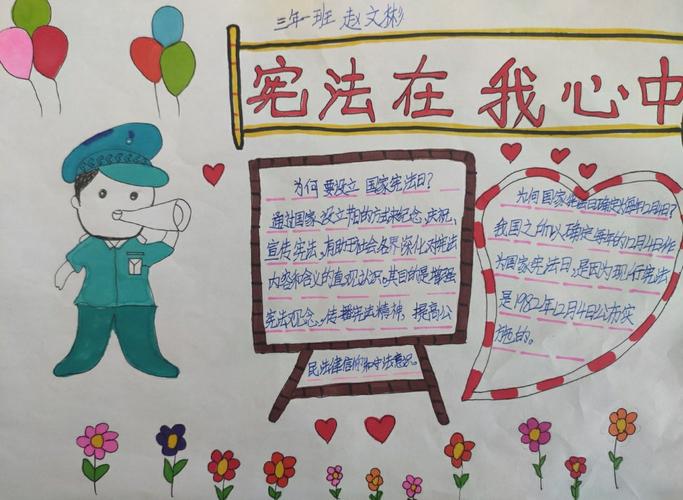 三年一班 赵文彬
宪法在我心中
为何要设立国家宪法日?
通过国家设立节日的方式来纪念、庆祝、
宣传宪法,有助于社会各界深化对宪法
内容和含义的直观认识。其目的是增强
宪法观念。传播宪法精神,提高公
民法律信仰和守法意识。
为何国家宪法日确定为每年12月4日?
我国之所以确定每年的12月4日作
为国家宪法日,是因为现行宪法
是1982年12月4日公布实
施的。